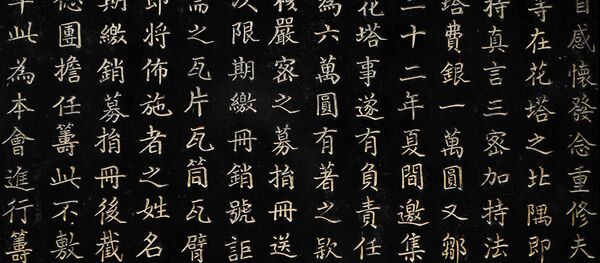 自感懷發念重修夫
等在花塔之北隅即
持真言三密加持法
塔費銀一萬圓又鄒
二十二年夏間邀集
花塔事遂有負責任
為六萬圓有著之款
核嚴密之募捐冊送
次限期繳冊銷號詎
需之瓦片瓦筒瓦臂
即將佈施者之姓名
期繳銷募捐冊後截
團擔任籌此不敷
此為本會進行籌